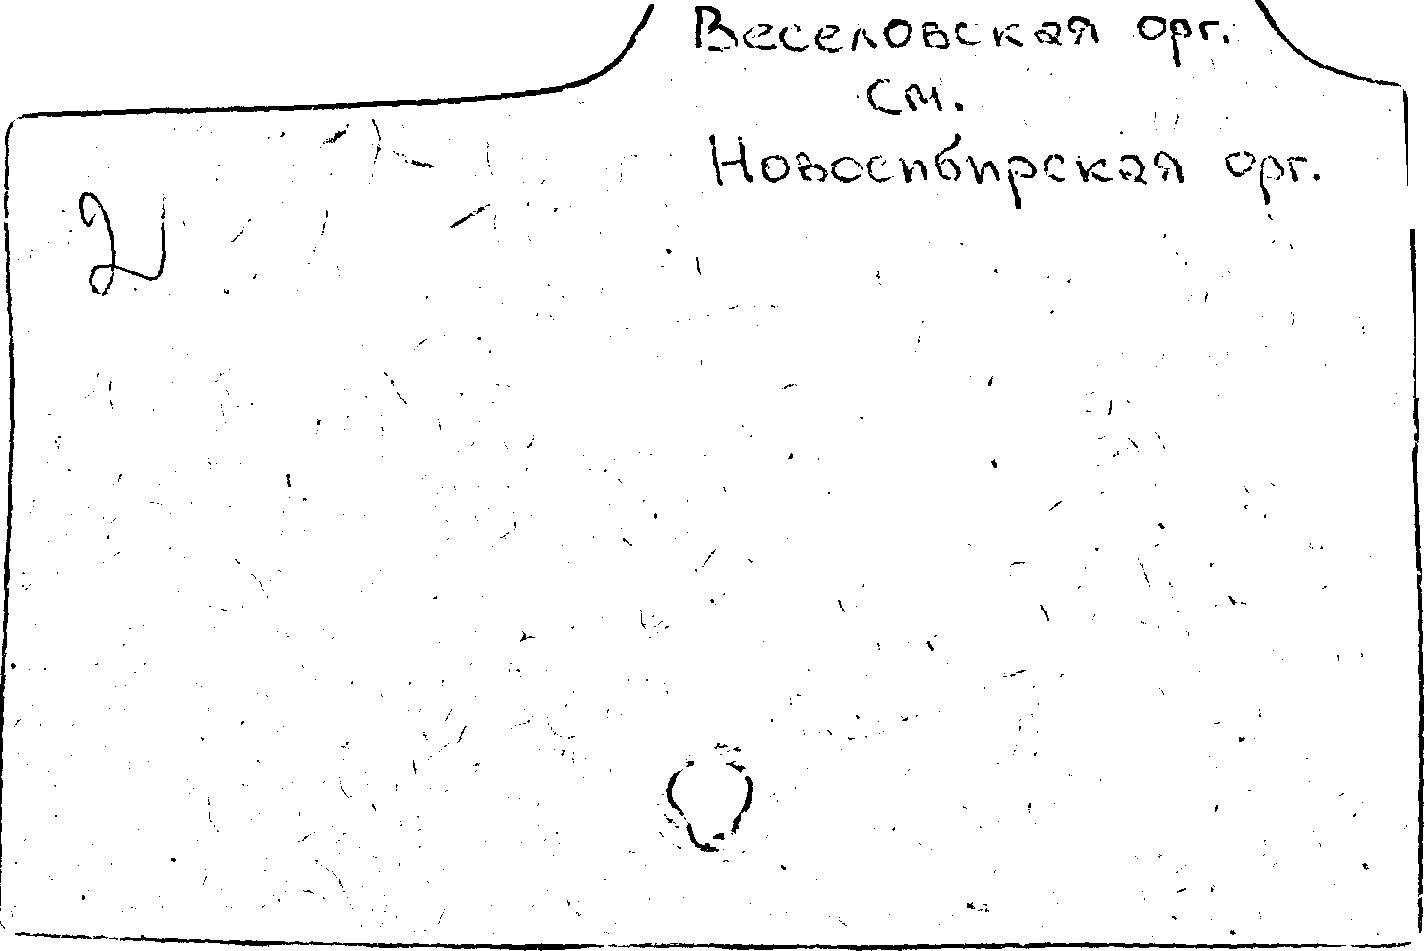 Веселовская орг.
см.
Новосибирская орг.